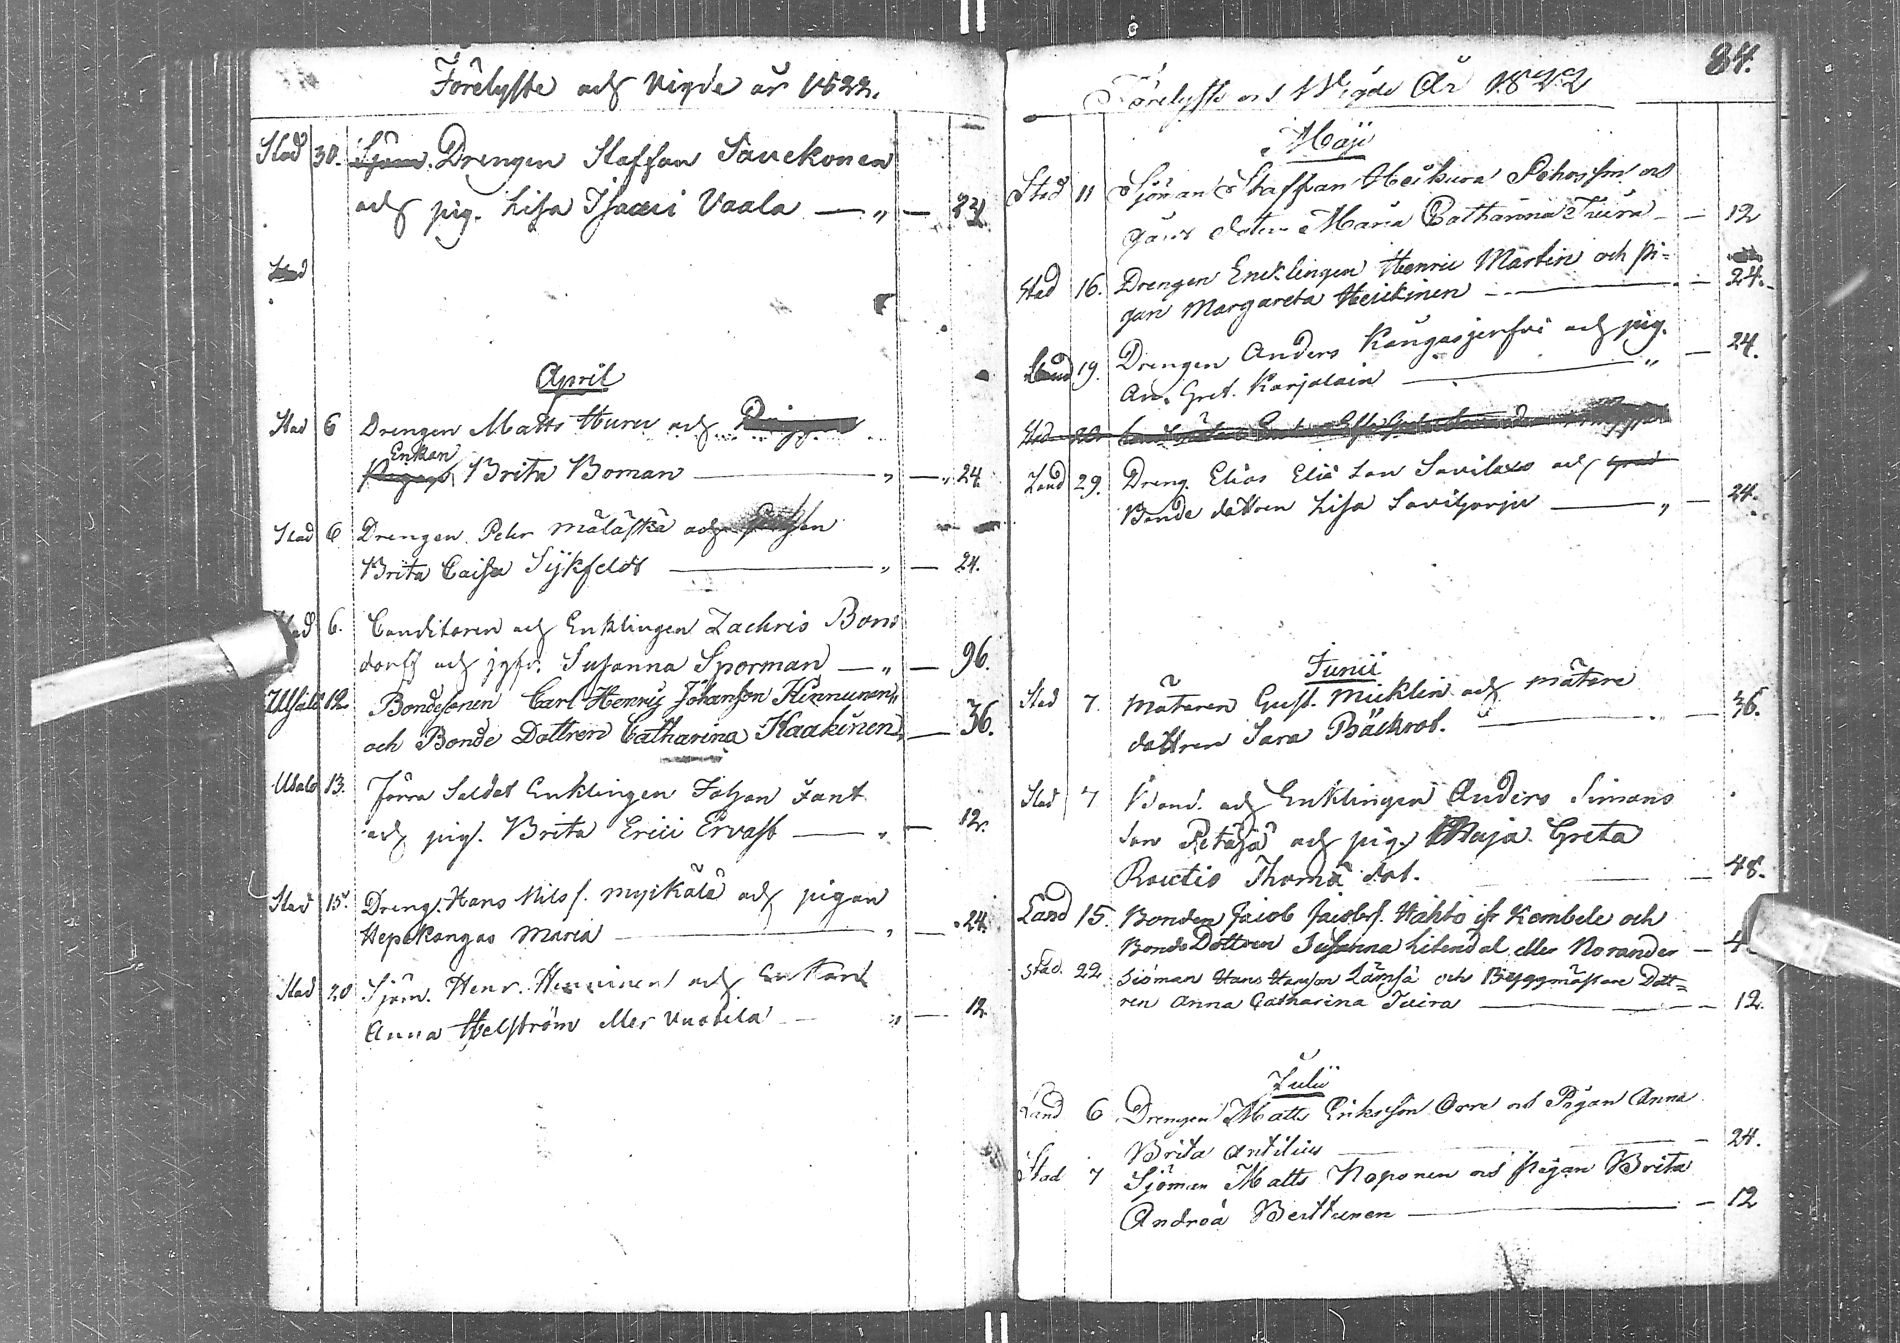 Förelyste och vigde år 1822.
Stad 30. Sjöm. Drengen Staffan Sauckonen
och pig. Lisa Isacri Vaala — „ — 24
Stad
April
Stad 6 Drengen Matts Huru och
Enkan
Pigan Brita Boman — „ — „ 24.
Stad 6 Drengen Petter Mäläskä och
Brita Caisa Sijkfeldt — „ — 24.
Stad 6. Conditoren och Enklingen Zachris Bons
dorff och jgfr. Susanna Sporman — „ — 96.
Uhsalo 12. Bondesonen Carl Henric Johansson Kinnunen „
och Bonde Dottren Catharina Haakinen „ — 36.
Uhsalo 13. Förra Soldat Enklingen Johan Fant
och pig. Brita Erici Ervast — „ — 12.
Stad 15. Dreng. Hans Nils s. Myikälä och pigan
Hepokangas Maria — „ — 24.
Stad 20 Sjöm. Henr. Henninen och Enkan
Anna Helström eller Vuotila — „ — 12
84.
Förelyste och Wigde År 1822
Maji
Stad 11 Sjöman Staffan Heikura Pehrsson och
Maria Catharina Tuira — — 12
Stad 16. Drengen Enklingen Henric Martin och Pi=
gan Margareta Heickinen — — 24.
Land 19. Drengen Anders Kangasjerfvi och pig.
An. Gret. Karjalain — „ — 24.
Stad 20.
Land 29. Dreng. Elias Elia son Savilaxo och
Bonde dottren Lisa Saviharju — „ — 24.
Junii
Stad 7. Mätaren Gust. Micklin och mätare
dottren Sara Bäckrot. — „ — 36.
Stad 7 Bond. och Enklingen Anders Simons
son Petäjä och pig. Maja Greta
Routio Thoma dot. — — 48.
Land 15. Bonden Jacob Jacobss. Hahto ifr Kembele och
Bonde Dottren Susanna Lilendal eller Norander — 4
Stad. 22 Siöman Hans Hansson Lämsä och Byggmästare Dott=
ren Anna Catharina Tuira — — 12.
Julii
Land 6 Drengen Matts Eriksson Orre och Pigan Anna
Brita Antilius — — 24.
Stad 7 Sjöman Matts Koponen och Pigan Brita
Andreä Verttunen — — 12